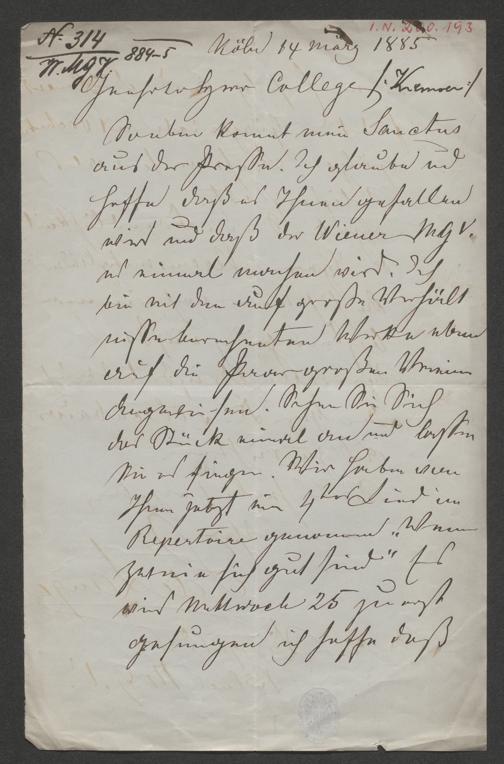 I.N. 200.193
N. 314
W.M.G.V. 884-5
Köln 14 März 1885
Geehrter Herr College /: Kremser :/
Soeben kommt mein Sanctus
aus der Presse. Ich glaube und
hoffe daß es Ihnen gefallen
wird und daß der Wiener MGV.
es einmal machen wird. Ich
bin mit dem auf große Verhält
nisse berechneten Werke eben
auf die Paar großen Vereine
angewiesen. Sehen Sie Sich
das Stück einmal an und lassen
Sie es singen. Wir haben von
Ihnen jetzt ein Lied im
Repertoire genommen „Wenn
Zweie sich gut sind" Es
wird Mittwoch 25 zuerst
gesungen ich hoffe daß